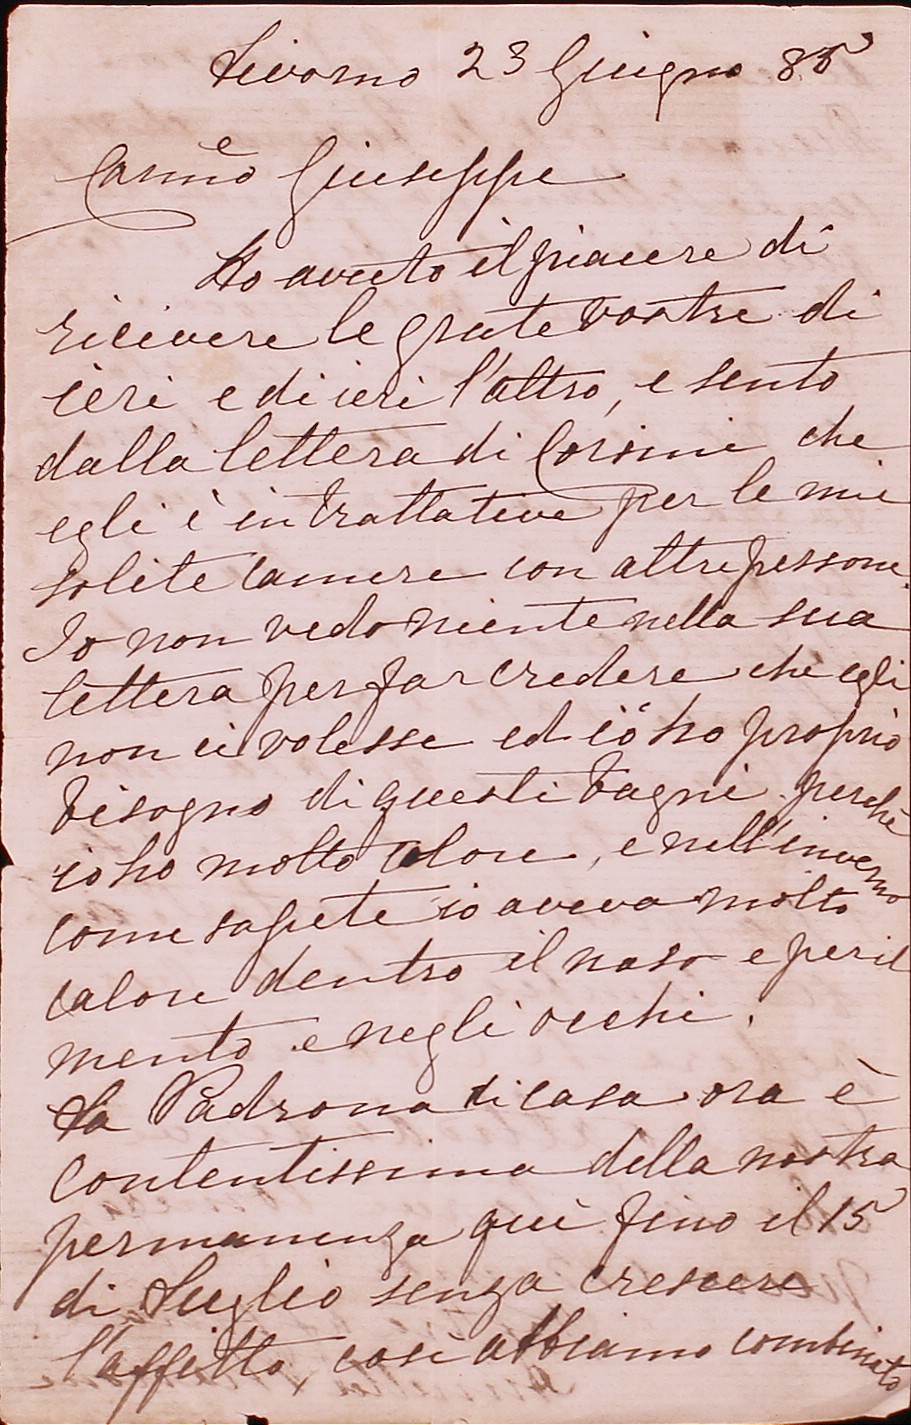 Livorno 23 Giugno 85
Carmo Giuseppe
Ho avuto il piacere di
ricivere le grate vostre di
ieri e di ieri l'altro, e sento
dalla lettera di Corsini che
egli è in trattative per le mie
solite camere con altre persone.
Io non vedo niente nella sua
lettera per far credere che egli
non ci volesse ed io ho proprio
bisogno di questi bagni perchè
io ho molto calore, e nell'inverno
come sapete io aveva molto
calore dentro il naso e per il
mento e negli occhi.
La Padrona di casa ora è
contentissima della nostra
permanenza qui fino il 15
di Luglio senza crescere
l'affitto, così abbiamo combinato